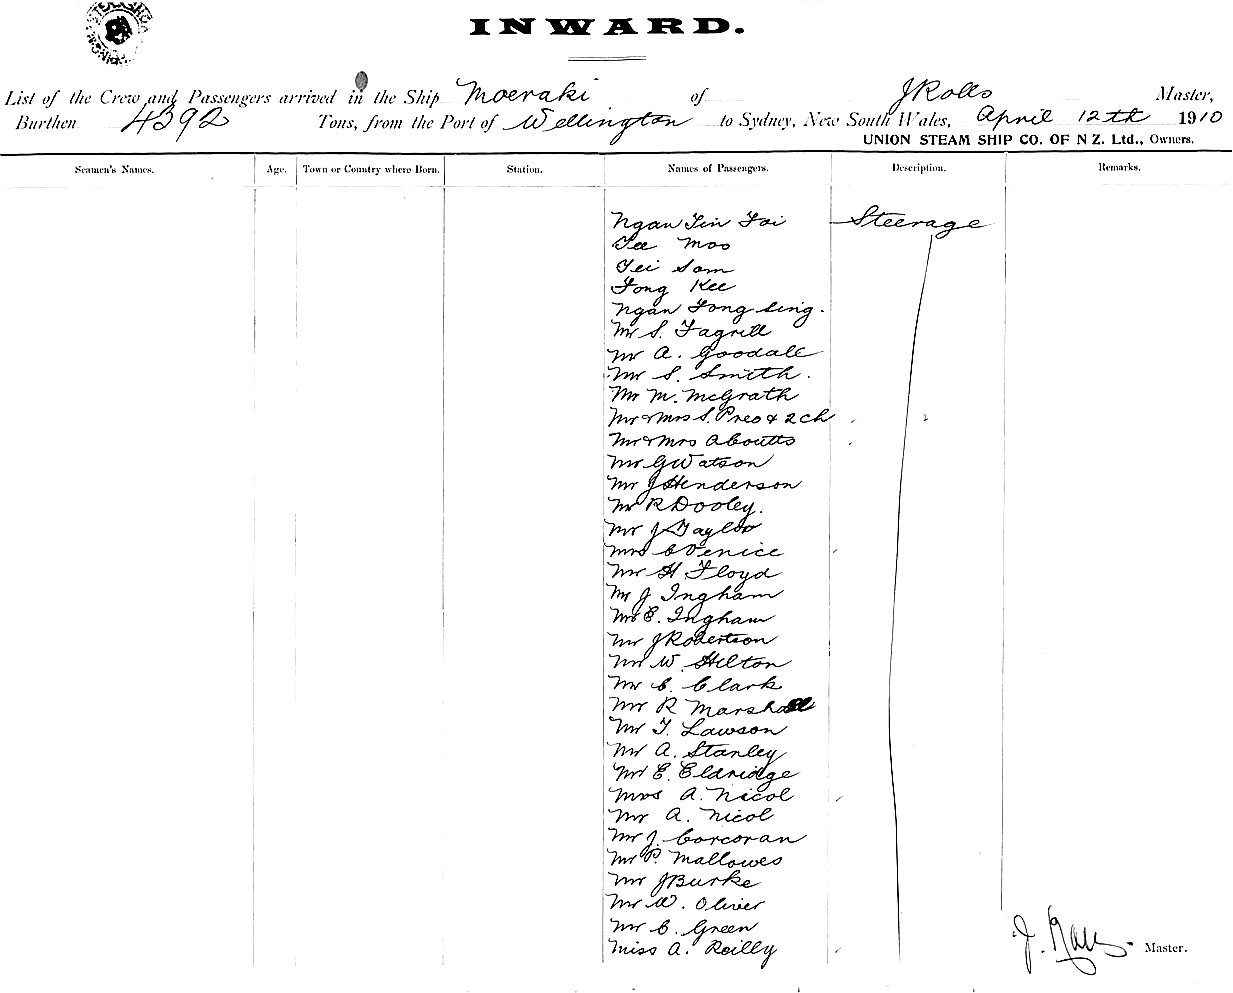 INWARD.
List of the Crew and Passengers arrived in the Ship Moeraki of J Rolls Master,
Burthen 4392 Tons, from the Port of Wellington to Sydney, New South Wales, April 12th 1910
UNION STEAM SHIP CO. OF N Z. Ltd., Owners.
Seamen's Names. Age. Town or Country where Born. Station. Names of Passengers. Description. Remarks.
Ngan Yin Foi Steerage
Moo
Sam
Fong Kee
Ngan Fong Sing.
Mr S. Fagrill
Mr A. Goodall
Mr S. Smith.
Mr M. McGrath
Mr & Mrs S. Preo & 2 ch
Mr & Mrs Aboutts
Mr G Watson
Mr J Henderson
Mr R Dooley.
Mr J Taylor
Mrs C Venice
Mr H Floyd
Mr J Ingham
Mrs E. Ingham
Mr J Robertson
Mr W. Hilton
Mr C. Clark
Mr R Marshall
Mr T. Lawson
Mr A. Stanley
Mr E. Eldridge
Mrs A. Nicol
Mr A. Nicol
Mr J. Corcoran
Mr P. Mallowes
Mr J Burke
Mr W. Oliver
Mr C. Green
Miss A. Reilly
J. Rolls Master.